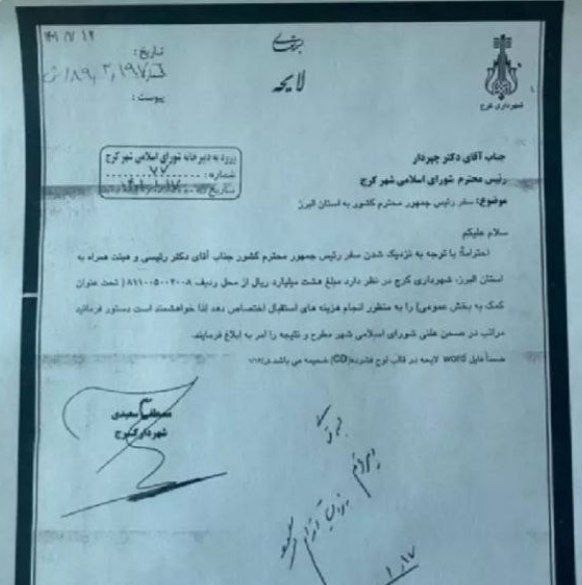 تاریخ :
پیوست :
لایحه
شهرداری کرج
ورود به دبیرخانه شورای اسلامی شهر کرج
شماره :
تاریخ
جناب آقای دکتر چهردار
رئیس محترم شورای اسلامی شهر کرج
موضوع: سفر رئیس جمهور محترم کشور به استان البرز
سلام علیکم
احتراماً؛ با توجه به نزدیک شدن سفر رئیس جمهور محترم کشور جناب آقای دکتر رئیسی و هیئت همراه به
استان البرز، شهرداری کرج در نظر دارد مبلغ هشت میلیارد ریال از محل ردیف ۸۱۱۰۰۵۰۰۲۰۰۸ ( تحت عنوان
کمک به بخش عمومی) را به منظور انجام هزینه های استقبال اختصاص دهد لذا خواهشمند است دستور فرمائید
مراتب در صحن علنی شورای اسلامی شهر مطرح و نتیجه را امر به ابلاغ فرمایند.
ضمناً فایل word لایحه در قالب لوح فشرده(CD) ضمیمه می باشد
مصطفی سعیدی
شهردار کرج